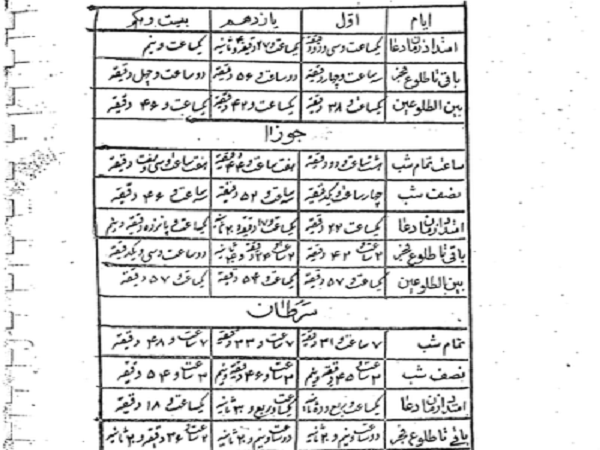 ایام اوّل یازدهم بیست و یکم
امتداد زمان دعا یکساعت و سی و دو دقیقه یکساعت و ۲۷ دقیقه و ثانیه یکساعت و نیم
باقی تا طلوع فجر سه ساعت و چهار دقیقه دو ساعت و ۵۶ دقیقه دو ساعت و چهل دقیقه
بین الطلوعین یکساعت و ۳۸ دقیقه یکساعت و ۴۲ دقیقه یکساعت و ۴۶ دقیقه
جوزا
ساعت تمام شب هشت ساعت و دو دقیقه هفت ساعت و ۴۴ دقیقه هفت ساعت و سی و هفت دقیقه
نصف شب چهار ساعت و یکدقیقه سه ساعت و ۵۲ دقیقه سه ساعت و ۴۶ دقیقه
امتداد زمان دعا یکساعت ۲۲ دقیقه یکساعت دقیقه و ثانیه یکساعت و پانزده دقیقه و نیم
باقی تا طلوع فجر ۲ ساعت و ۴۲ دقیقه ۲ ساعت دقیقه و ثانیه دو ساعت و سی و یکدقیقه
بین الطلوعین یکساعت و ۵۷ دقیقه یکساعت و ۵۴ دقیقه یکساعت و ۵۷ دقیقه
سرطان
تمام شب ۷ ساعت و ۳۱ دقیقه ۷ ساعت و ۳۳ دقیقه ۷ ساعت و ۴۸ دقیقه
نصف شب ۳ ساعت و ۴۵ دقیقه و نیم ۳ ساعت و ۴۶ دقیقه و نیم ۳ ساعت و ۵۴ دقیقه
امتداد زمان دعا یکساعت و ربع و ده ثانیه یکساعت و ربع و ۳۰ ثانیه یکساعت و ۱۸ دقیقه
باقی تا طلوع فجر دو ساعت و نیم و ۲۰ ثانیه دو ساعت و نیم و ۲۰ ثانیه ۲ ساعت و ۳۶ دقیقه و ۲۰ ثانیه